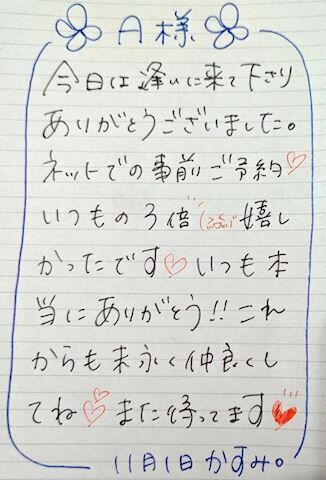 A様
今日は逢いに来て下さり
ありがとうございました。
ネットでの事前ご予約♡
いつもの3倍 嬉し
かったです♡いつも本
当にありがとう!!これ
からも末永く仲良くし
てね♡また待ってます♥
11月1日かすみ。